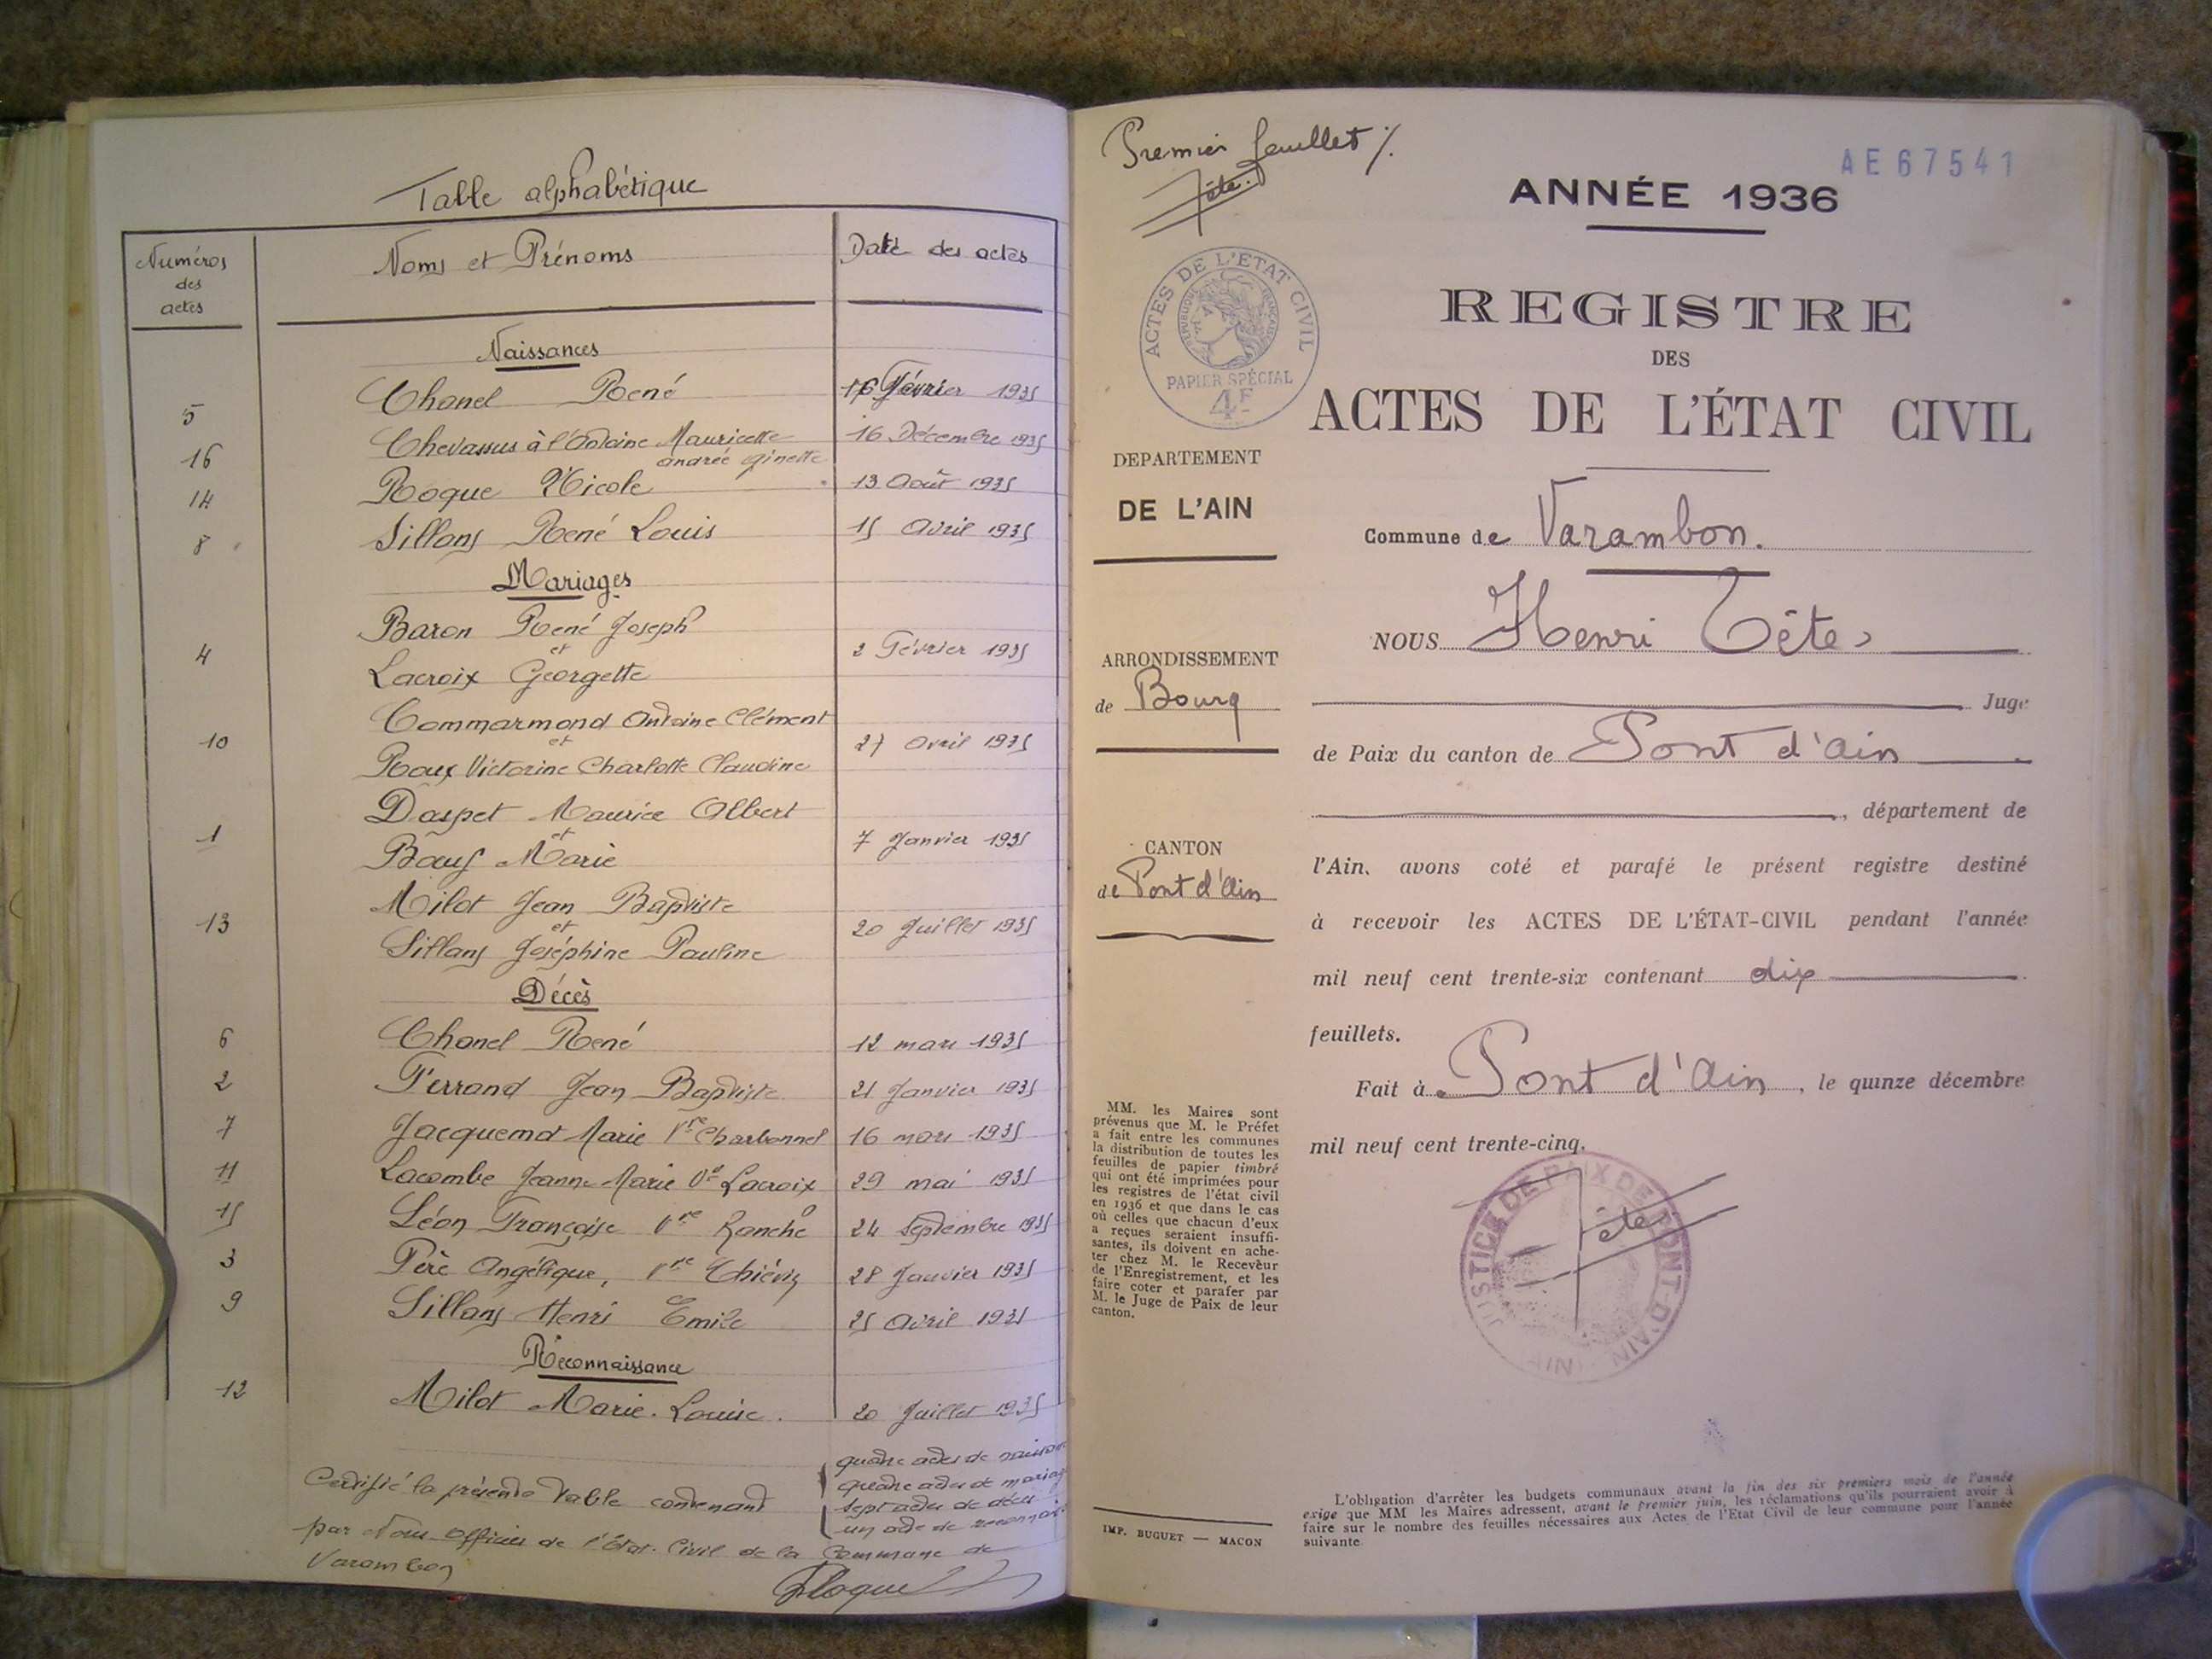 Table alphabétique
Numéros des actes
Noms et Prénoms
Date des actes
Naissances
5 Chanel René 16 Février 1935
16 Chevassus à l'Antoine Mauricette 16 Décembre 1935
andrée ginette
14 Roque Nicole 13 Août 1935
8 Sillans René Louis 15 Avril 1935
Mariages
Baron René Joseph
4 et 2 Février 1935
Lacroix Georgette
Commarmond Antoine Clément
10 et 27 Avril 1935
Roux Victorine Charlotte Claudine
Daspet Maurice Albert
1 et 7 Janvier 1935
Bœuf Marie
Milot Jean Baptiste
13 et 20 Juillet 1935
Sillans Joséphine Pauline
Décès
6 Chanel René 12 mars 1935
2 Ferrand Jean Baptiste 21 Janvier 1935
7 Jacquemot Marie Vve Charbonnel 16 mars 1935
11 Lacombe Jeanne Marie Ve Lacroix 29 mai 1935
15 Léon Françoise Vve 24 Septembre 1935
3 Père Angélique, Vve 28 Janvier 1935
9 Sillans Henri Emile 25 Avril 1935
Réconnaissance
12 Milot Marie-Louise. 20 Juillet 1935
Certifié la présente table contenant
quatre actes de naissan
quatre actes de mariag
sept actes de décès
un acte de reconnais
par Nous Officier de l'Etat-Civil de la Commune de
Varambon
Roque
Premier feuillet ./.
Tête
AE67541
ANNÉE 1936
ACTES DE L'ÉTAT CIVIL
RÉPUBLIQUE FRANÇAISE
PAPIER SPÉCIAL
4F
REGISTRE
DES
ACTES DE L'ÉTAT CIVIL
DEPARTEMENT
DE L'AIN
ARRONDISSEMENT
de Bourg
CANTON
de Pont d'Ain
MM. les Maires sont
prévenus que M. le Préfet
a fait entre les communes
la distribution de toutes les
feuilles de papier timbré
qui ont été imprimées pour
les registres de l'état civil
en 1936 et que dans le cas
où celles que chacun d'eux
a reçues seraient insuffi-
santes, ils doivent en ache-
ter chez M. le Receveur
de l'Enregistrement, et les
faire coter et parafer par
M. le Juge de Paix de leur
canton.
IMP. BUGUET — MACON
Commune de Varambon.
NOUS Henri Tête,
Juge
de Paix du canton de Pont d'Ain
, département de
l'Ain, avons coté et parafé le présent registre destiné
à recevoir les ACTES DE L'ÉTAT-CIVIL pendant l'année
mil neuf cent trente-six contenant dix
feuillets.
Fait à Pont d'Ain, le quinze décembre
mil neuf cent trente-cinq.
JUSTICE DE PAIX DE PONT-D'AIN
AIN
Tête
L'obligation d'arrêter les budgets communaux avant la fin des six premiers mois de l'année
exige que MM les Maires adressent, avant le premier juin, les réclamations qu'ils pourraient avoir à
faire sur le nombre des feuilles nécessaires aux Actes de l'Etat Civil de leur commune pour l'année
suivante